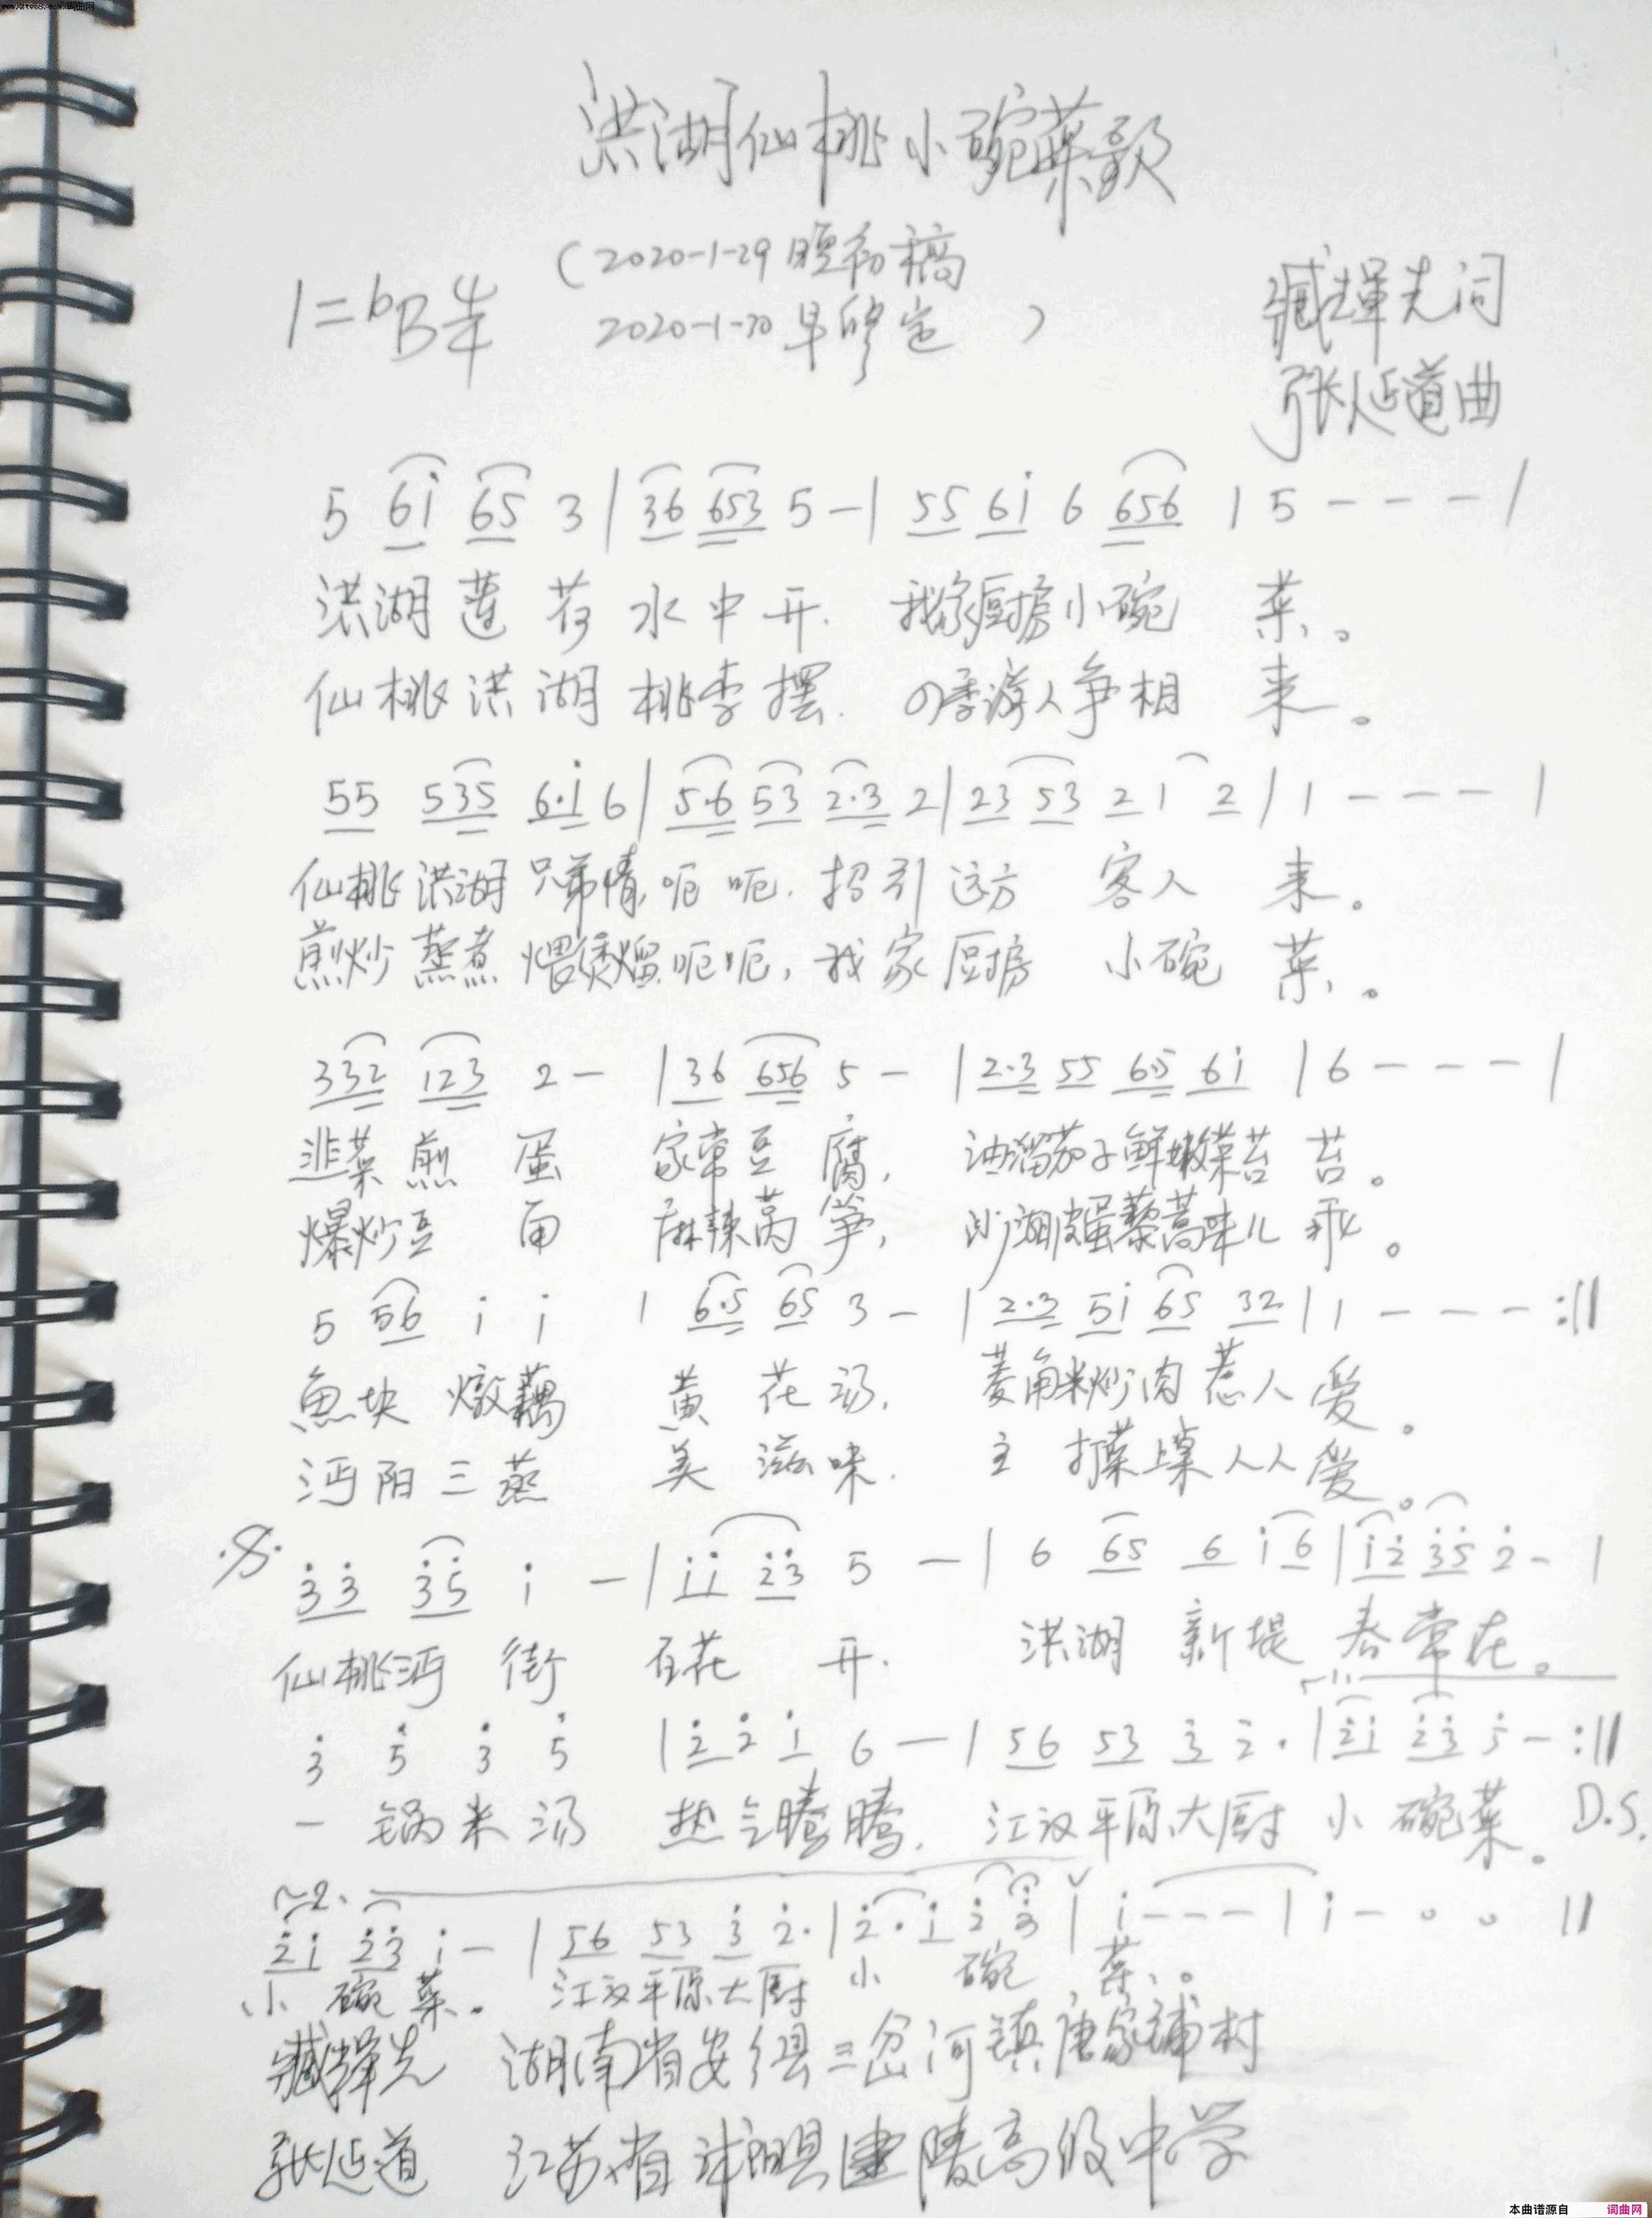 洪湖仙桃小碗菜歌
(2020-1-29晚初稿
1=bB 4/4
2020-1-30早修定)
臧辉先词
张延道曲
5 6i 65 3 | 36 653 5 — | 55 6i 6 656 | 5 - - - |
洪湖莲花水中开. 我家厨房小碗菜。
仙桃洪湖桃李摆. 四季游人争相来。
55 535 6·i 6 | 5·6 53 2·3 2 | 23 53 2 1 2 | 1 - - - |
仙桃洪湖兄弟情,呃呃. 招引远方客人来。
煎炒蒸煮煨煲熘,呃呃, 我家厨房小碗菜。
332 123 2 — | 36 656 5 — | 2·3 55 6·5 6i | 6 - - - |
韭菜煎蛋 家常豆腐, 油溜茄子鲜嫩菜苔苔。
爆炒豆角 麻辣莴笋, 沙湖皮蛋藜蒿味儿乖。
5 56 i i | 6·5 65 3 — | 2·3 5i 65 32 | 1 - - - :||
鱼块燉藕 黄花汤, 菱角米炒肉惹人爱。
沔阳三蒸 美滋味. 主打菜上桌人人爱。
3 3 35 i — | ii 23 5 — | 6 65 6 i 6 | i2 35 2 - |
仙桃沔街百花开. 洪湖新堤春常在。
3 5 3 5 | 2 2 i 6 — | 56 53 3 2· | 2i 23 5 — :||
一锅米汤 热气腾腾, 江汉平原大厨小碗菜。 D.S.
2.
2i 23 i — | 56 53 3 2· | 2·i 2 3 | i - - - | i - 0 0 ||
小碗菜。 江汉平原大厨小碗菜。
臧辉先 湖南省安乡县三岔河镇唐家铺村
张延道 江苏省沭阳县建陵高级中学
本曲谱源自 词曲网